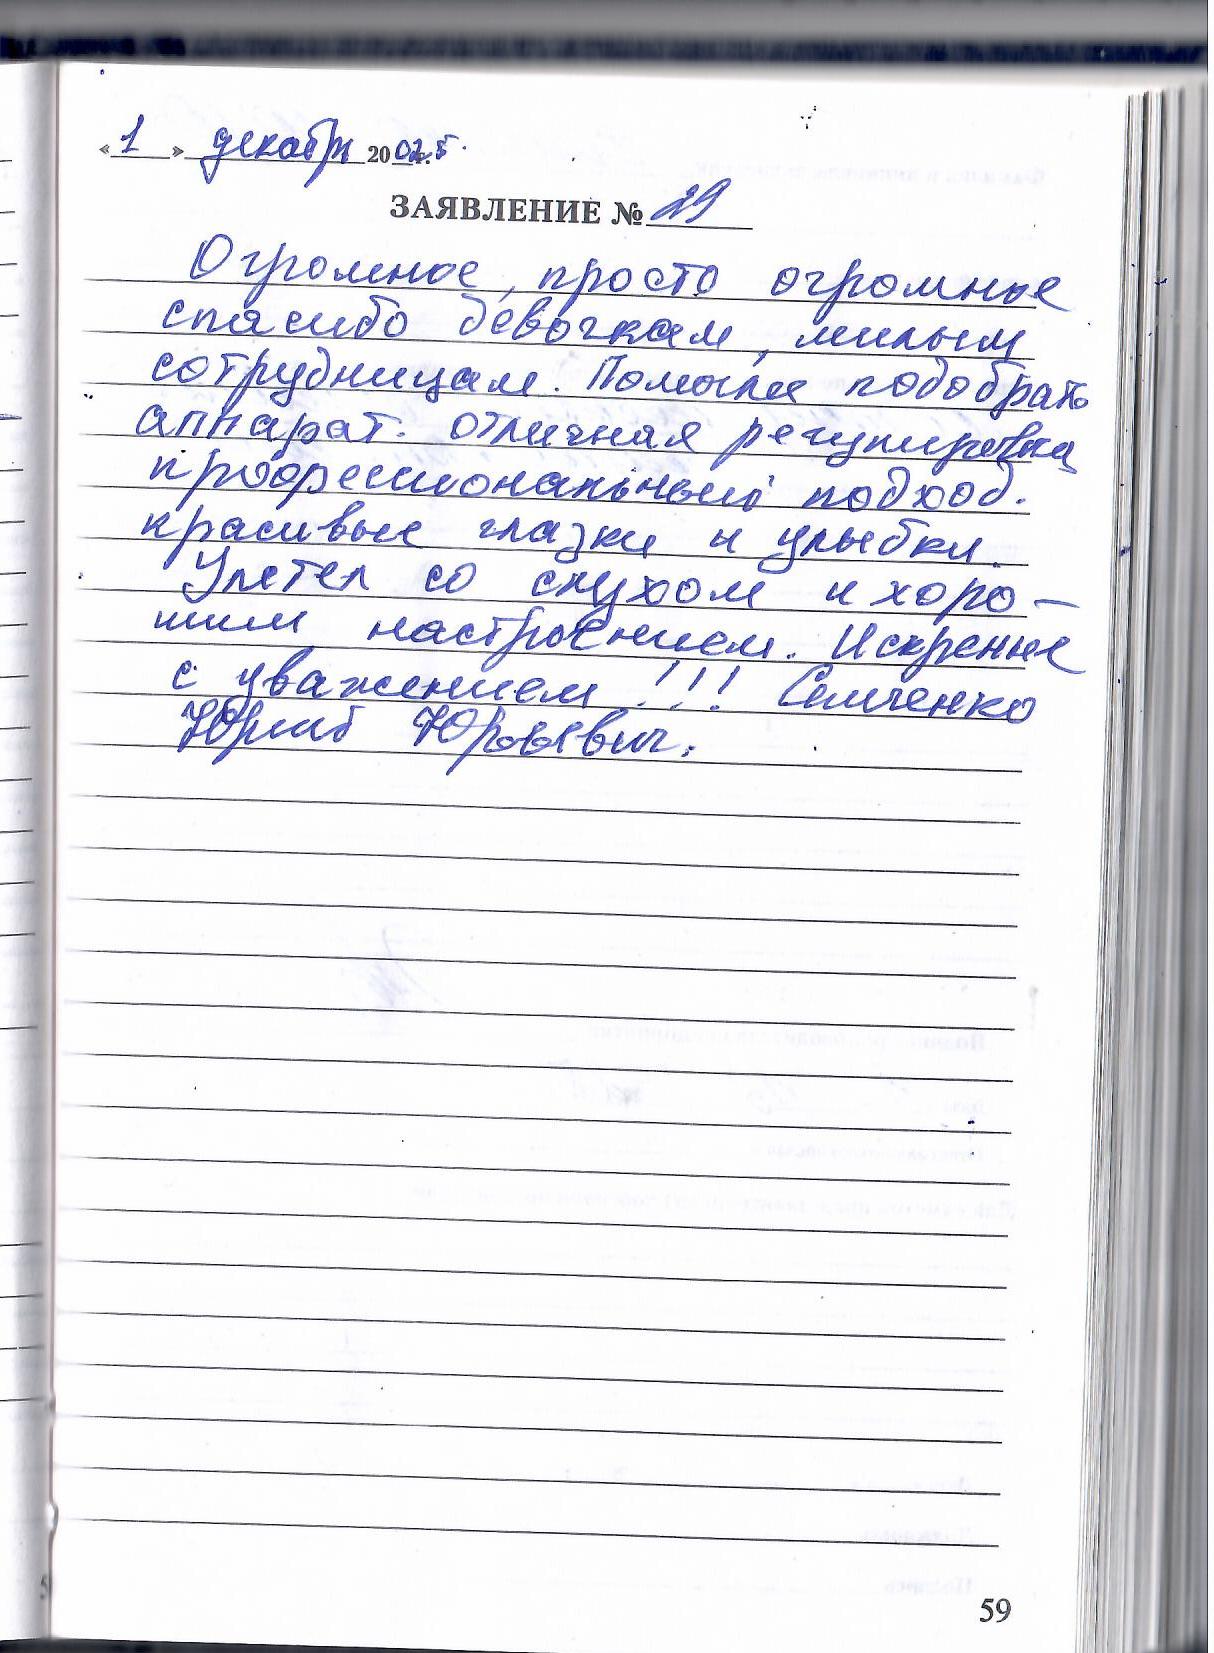 «1» декабря 2025.
ЗАЯВЛЕНИЕ № 29
Огромное, просто огромные
спасибо девочкам, милым
сотрудницам. Помогли подобрать
аппарат. Отличная регулировка
профессиональный подход.
красивые глазки и улыбки.
Улетел со слухом и хоро-
шим настроением. Искренне
с уважением!!! Семченко
Юрий Юрьевич.
59